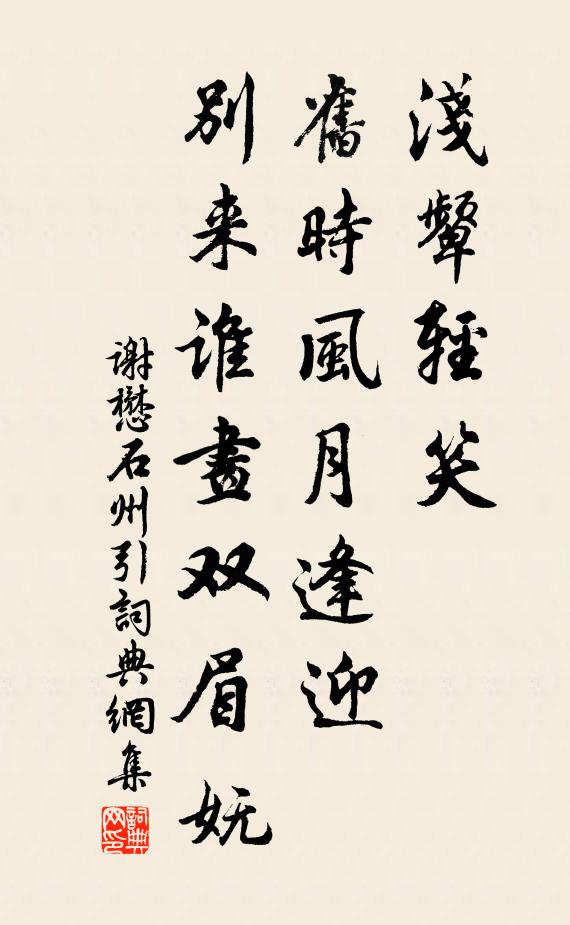 淺顰輕笑
舊時風月逢迎
別来誰畫双眉妩
谢懋石州引詞典網集
詞典网印